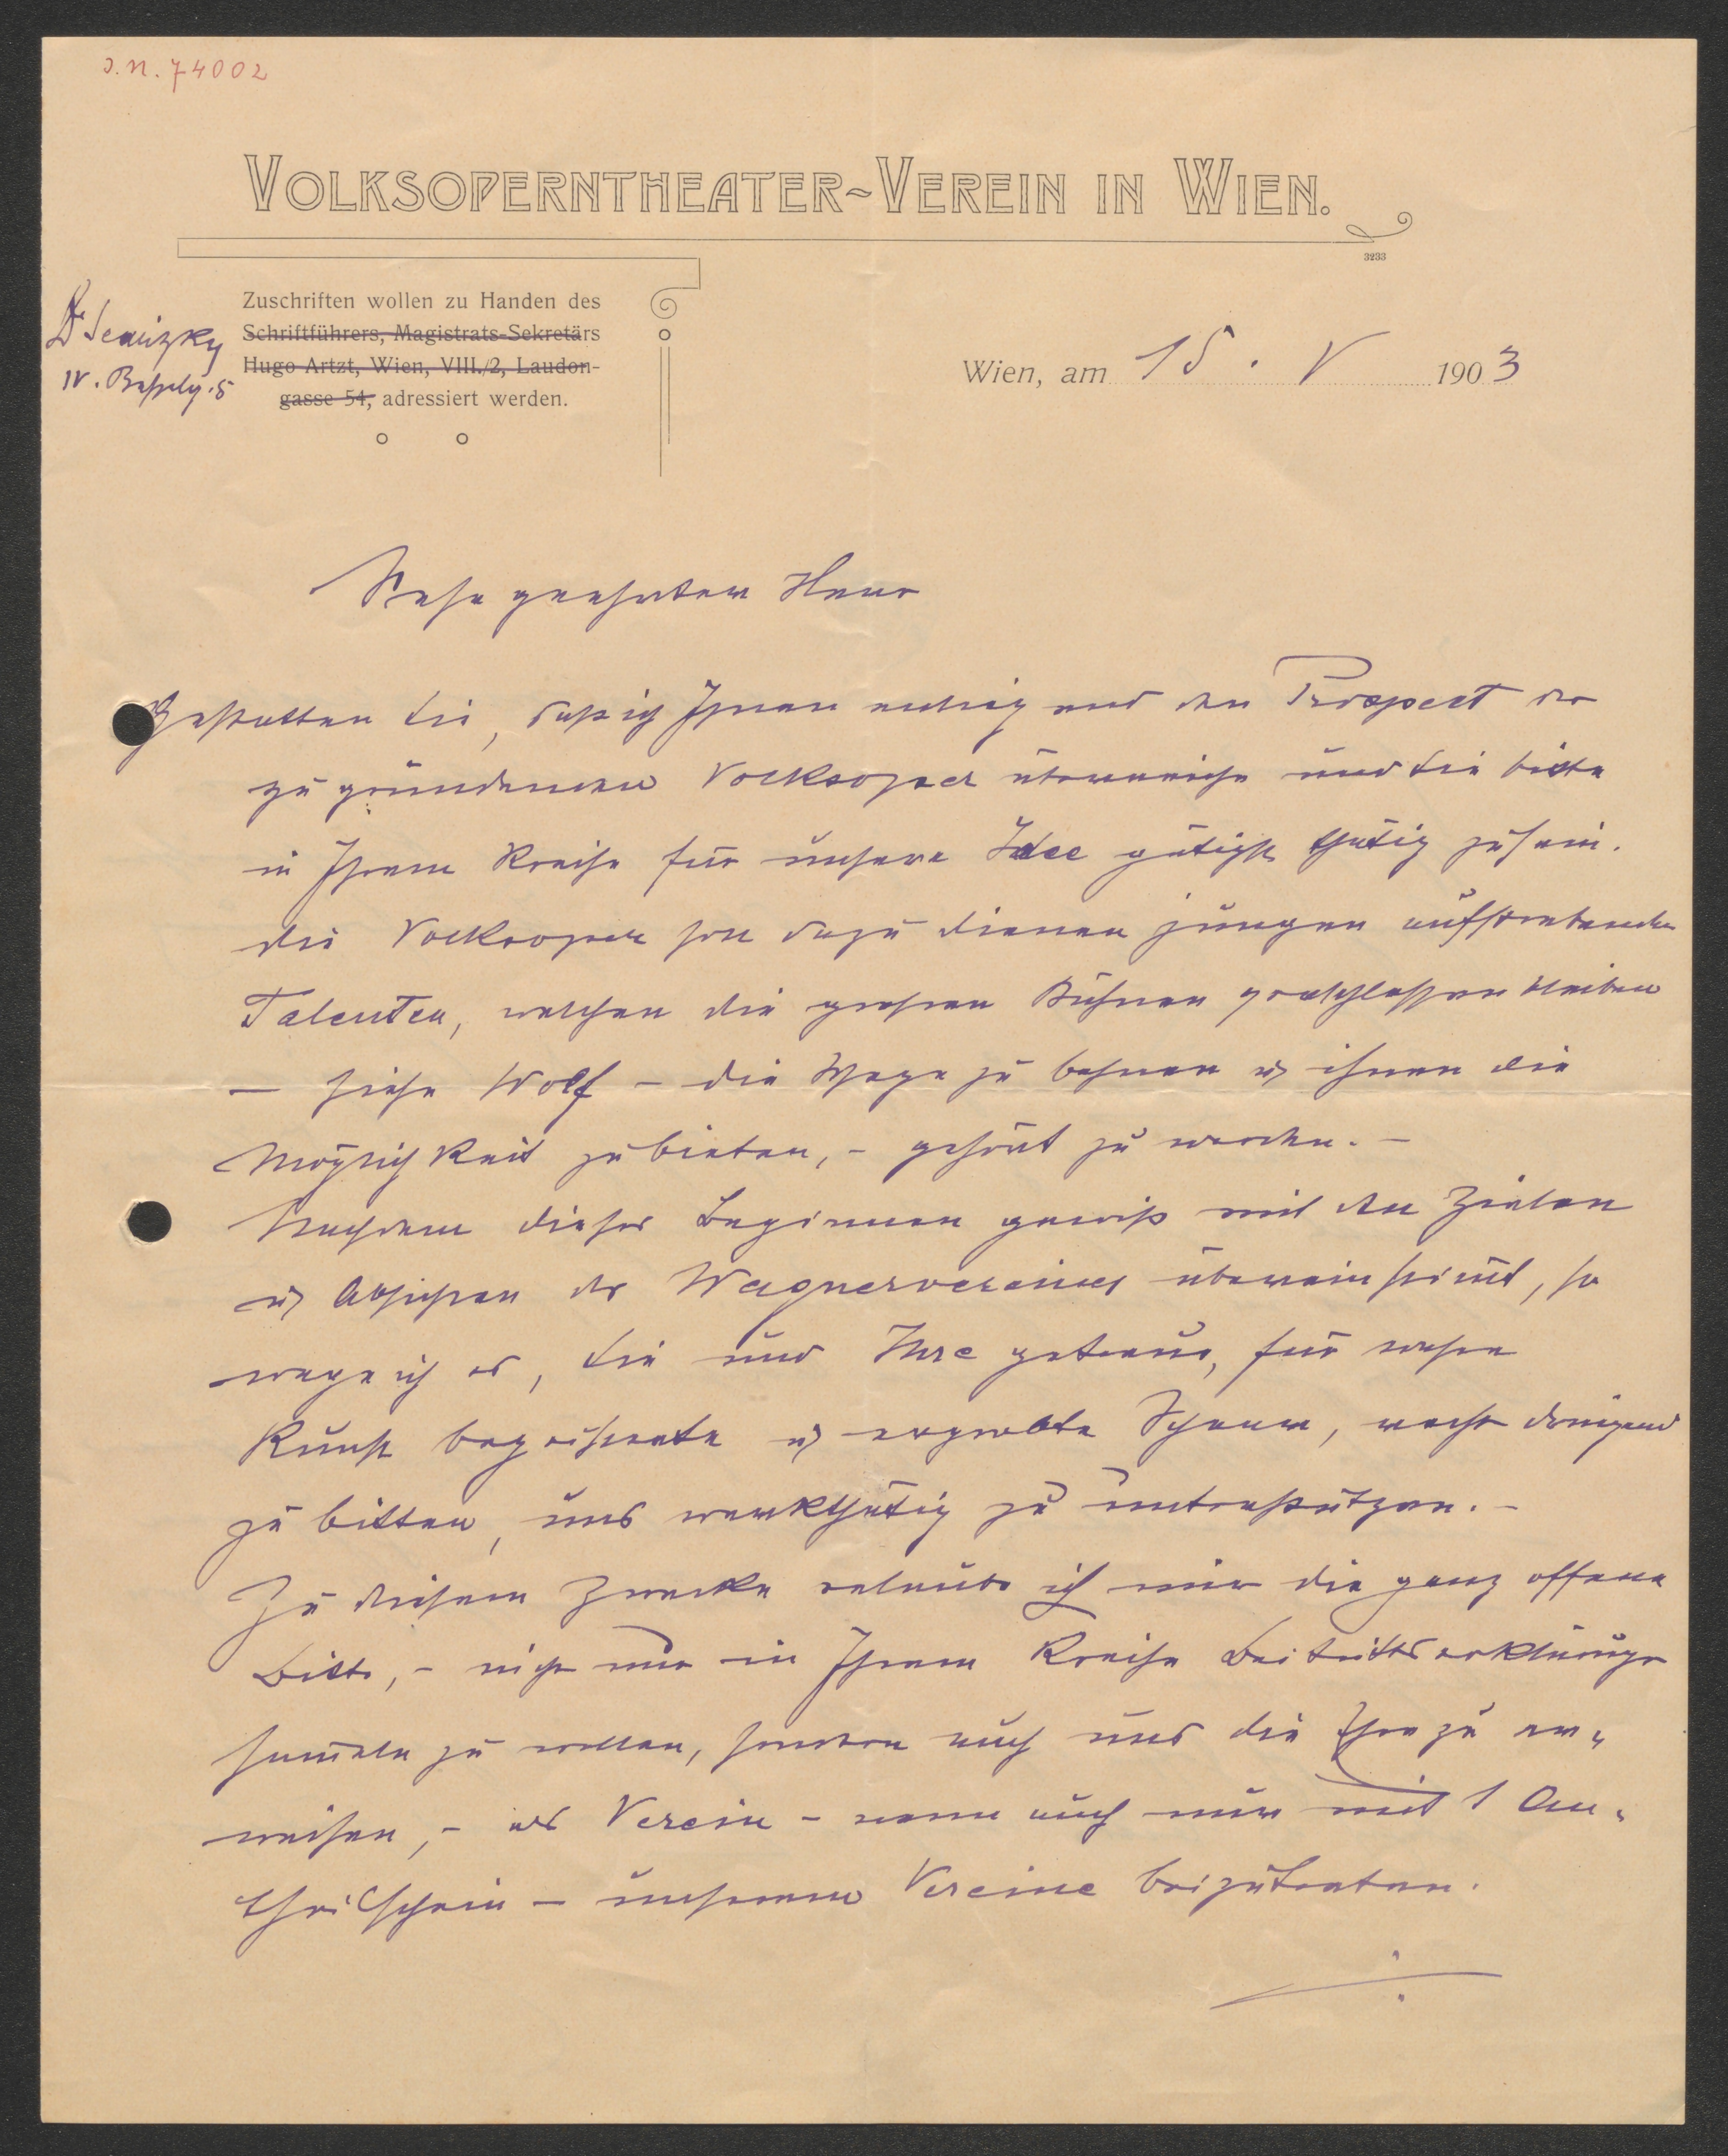 J.N. 74002
VOLKSOPERNTHEATER-VEREIN IN WIEN.
3233
Zuschriften wollen zu Handen des
Schriftführers, Magistrats-Sekretärs
Hugo Artzt, Wien, VIII./2, Laudon-
gasse 54, adressiert werden.
Dr
IV. 5
Wien, am 15. V 1903
Sehr geehrter Herr
Gestatten Sie, daß ich Ihnen anliegend den Prospect der
zu gründenden Volksoper überreiche und Sie bitte
in Ihrem Kreise für unsere Idee gütigst thätig zu sein.
Die Volksoper soll dazu dienen jungen aufstrebenden
Talenten, welchen die großen Bühnen verschlossen bleiben
– siehe Wolf – die Wege zu bahnen u ihnen die
Möglichkeit zu bieten, – gehört zu werden. –
Nachdem dieses Beginnen gewiß mit den Zielen
u Absichten des Wagnervereines übereinstimt, so
wage ich es, Sie und Ihre getreue, für wahre
Kunst begeisterte u erprobte Schaar, recht dringend
zu bitten, uns werkthätig zu unterstützen. –
Zu diesem Zwecke erlaube ich mir die ganz offene
Bitte, – nicht nur in Ihrem Kreise Beitrittserklärungen
sameln zu wollen, sondern auch uns die Ehre zu er-
weisen, – als Verein – wenn auch nur mit 1 An-
theilschein – unserem Vereine beizutreten.